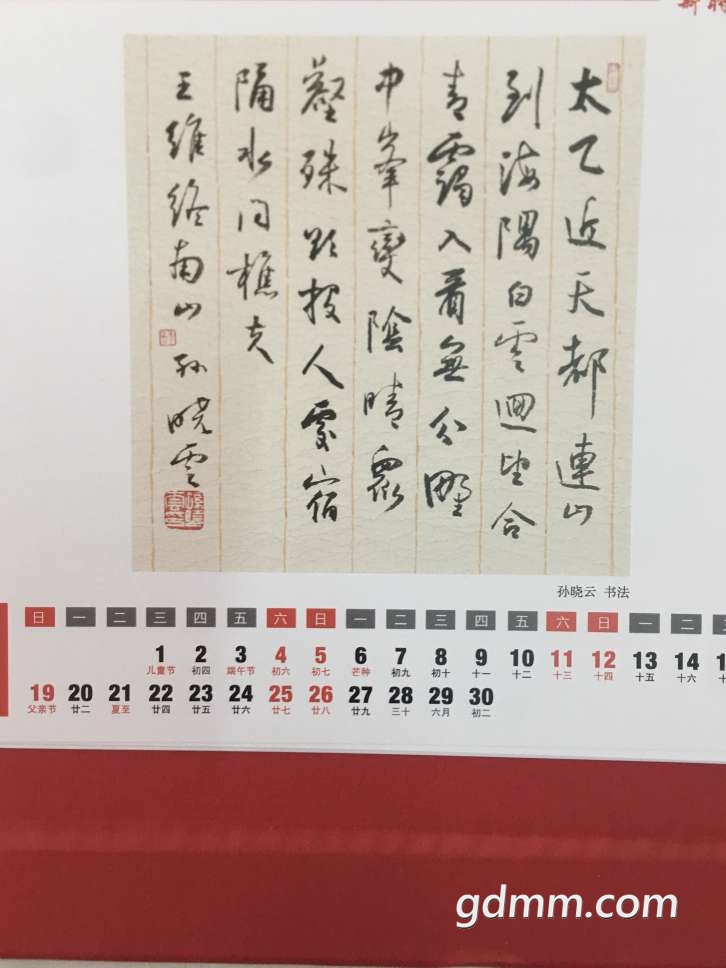 太乙近天都連山
到海隅白雲迴望合
青靄入看無分野
中峯變陰晴眾
壑殊欲投人處宿
隔水问樵夫
王維终南山 孙晓云
孙晓云 书法
日 一 二 三 四 五 六 日 一 二 三 四 五 六 日 一 二
1 2 3 4 5 6 7 8 9 10 11 12 13 14
儿童节 初四 端午节 初六 初七 芒种 初九 初十 十一 十二 十三 十四 十五 十六
19 20 21 22 23 24 25 26 27 28 29 30
父亲节 廿二 夏至 廿四 廿五 廿六 廿七 廿八 廿九 三十 六月 初二
gdmm.com